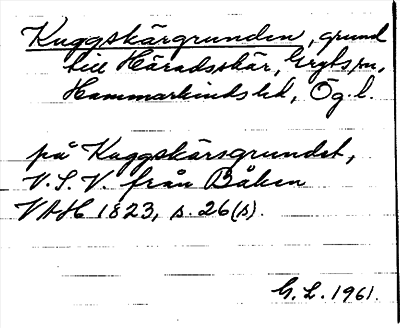 Kuggskärgrunden, grund
till Häradsskär, Gryts sn,
Hammarkinds hd, Ög. l.
på Kuggskärsgrundet,
V.S.V. från Båken
VAH 1823, s. 26(s).
G. L. 1961.